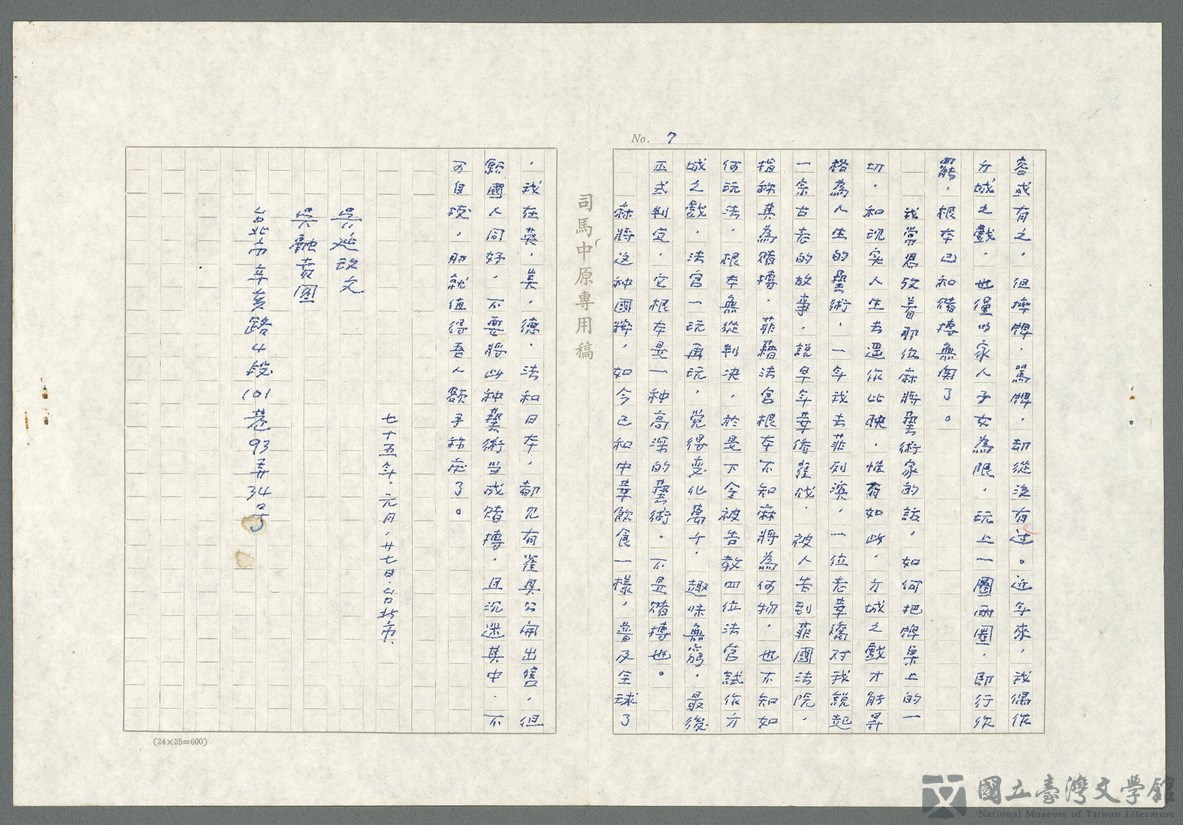 No. 7
容或有之，但啤牌．罵牌，却從沒有过。近年來，我偶作
方城之戲，也僅以家人子女為限，玩上一圈兩圈，即行作
罷，根本已和賭博無関了。
我常思攷着那位麻將藝術家的話，如何把牌桌上的一
切，和現实人生去選作比映，惟有如此，方城之戲才能昇
格為人生的藝術，一年我去菲列濱，一位老華僑对我說起
一个古老的故事，說早年華僑雀战，被人告到菲國法院，
指称其為賭博，菲籍法官根本不知麻將為何物，也不知如
何玩法，根本無從判決，於是下令被告教四位法官試作方
城之戲，法官一玩再玩，覚得变化萬千，趣味無窮，最後
正式判定，它根本是一种高深的藝術，不是賭博也。
麻將这种國牌，如今已和中華飲食一樣，普及全球了
司馬中原專用稿
，我在英，美，德，法和日本，都見有雀具公開出售，但
願國人同好，不要將此种藝術当成賭博，且沉迷其中，不
万自拔，那就值得吾人額手称慶了。
七十五年．元月．廿七日．台北市．
吳延玫
吳融賣圆
台北市辛亥路4段101巷93弄34号
(24×25=600)
國立臺灣文學館
National Museum of Taiwan Literature